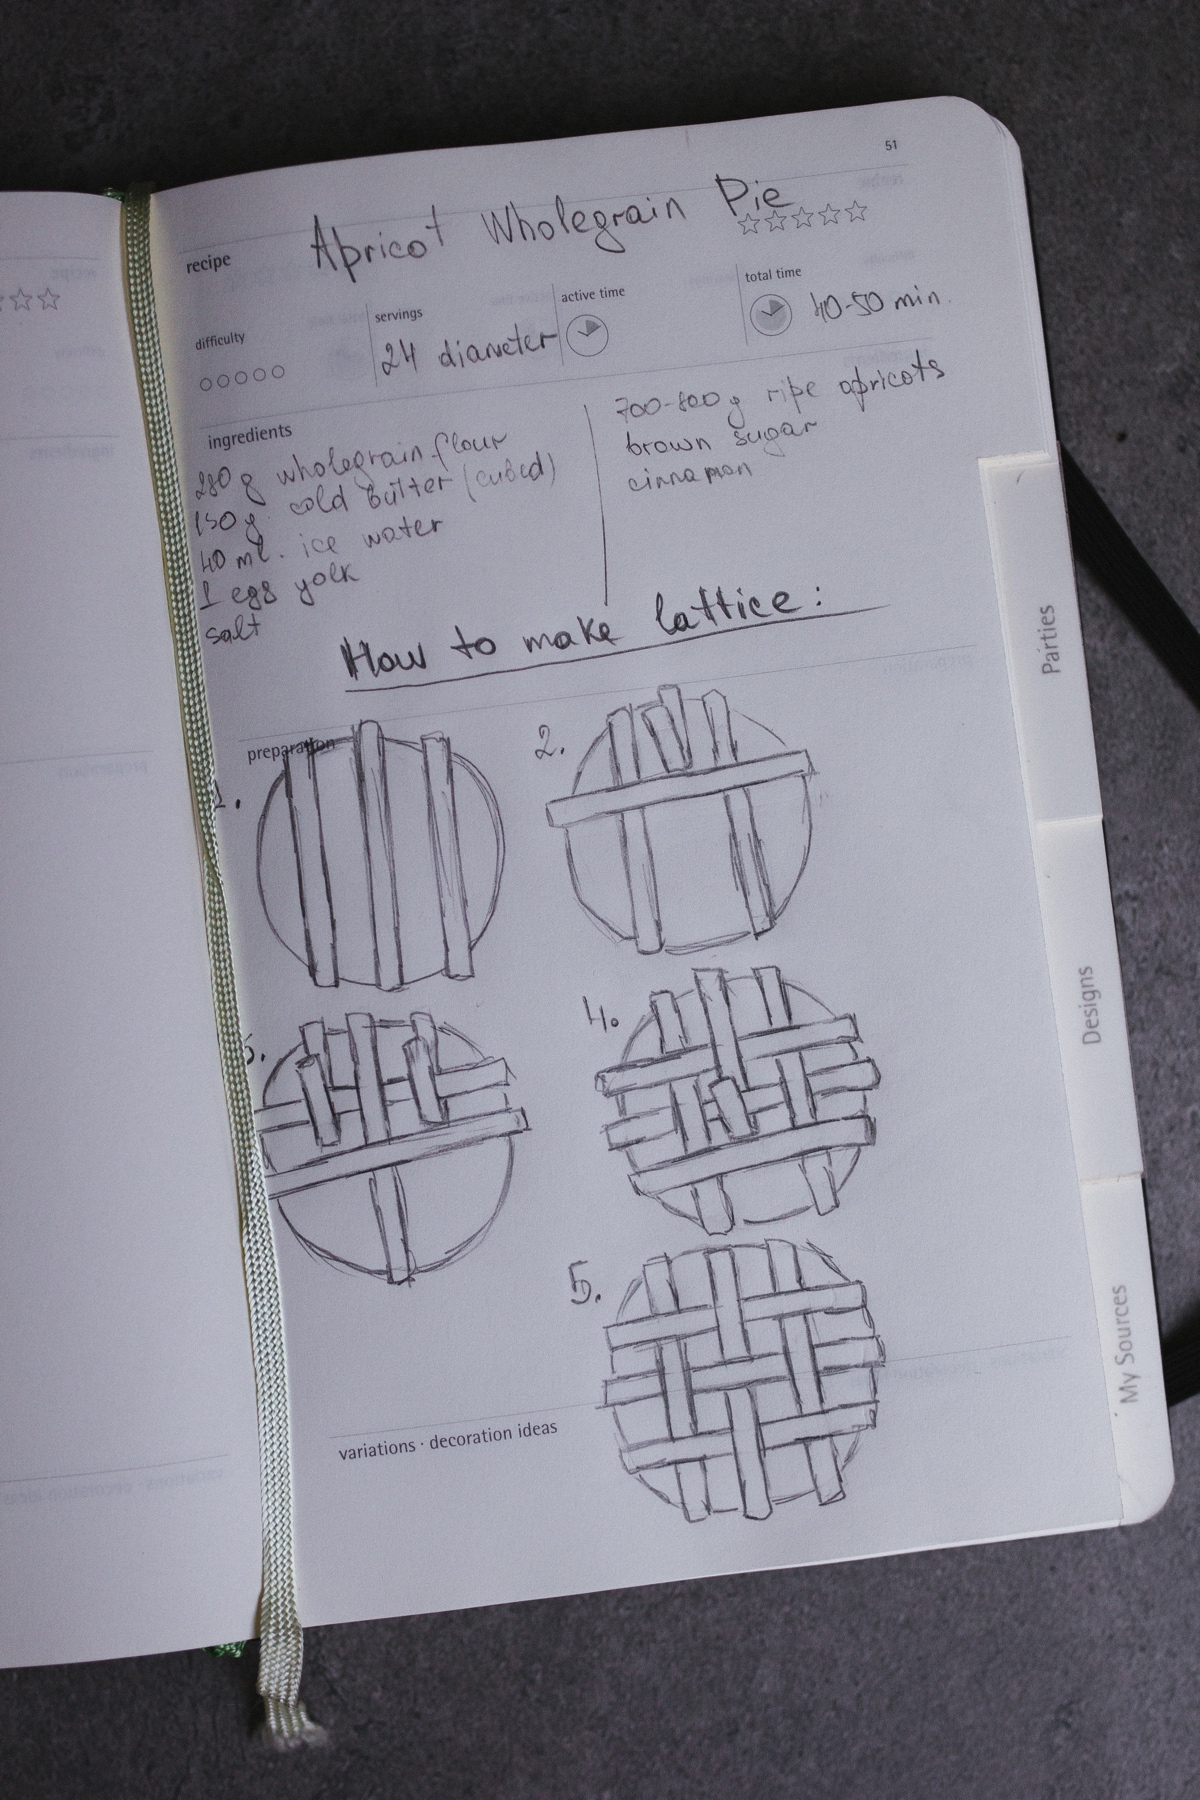 51
Apricot Wholegrain Pie
recipe
difficulty
servings
24 diameter
active time
total time
40-50 min.
ingredients
280 g wholegrain flour
150 g. cold butter (cubed)
40 ml. ice water
1 egg yolk
salt
700-800 g ripe apricots
brown sugar
cinnamon
How to make lattice:
preparation
1.
2.
3.
4.
5.
variations · decoration ideas
Parties
Designs
My Sources